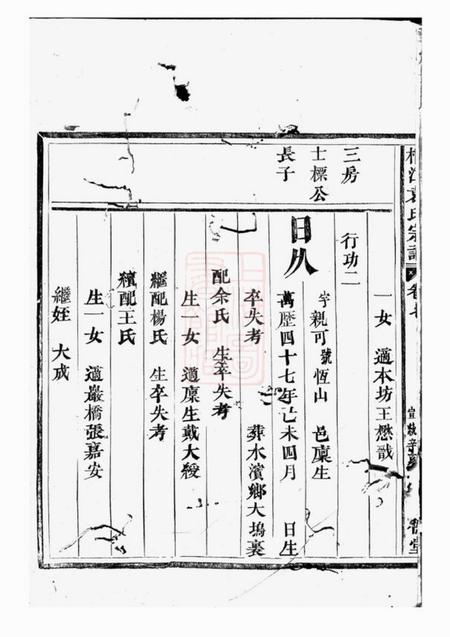 氏宗譜
卷
一女 適本坊王懋戩
行功二
三房
士標公
長子
日久
字親可號恆山 邑廩生
萬歷四十七年己未四月 日生
卒失考 葬水濱鄉大塢裏
配余氏 生卒失考
生一女 適廩生戴大綬
繼配楊氏 生卒失考
續配王氏
生一女 適巖橋張嘉安
繼姪 大成